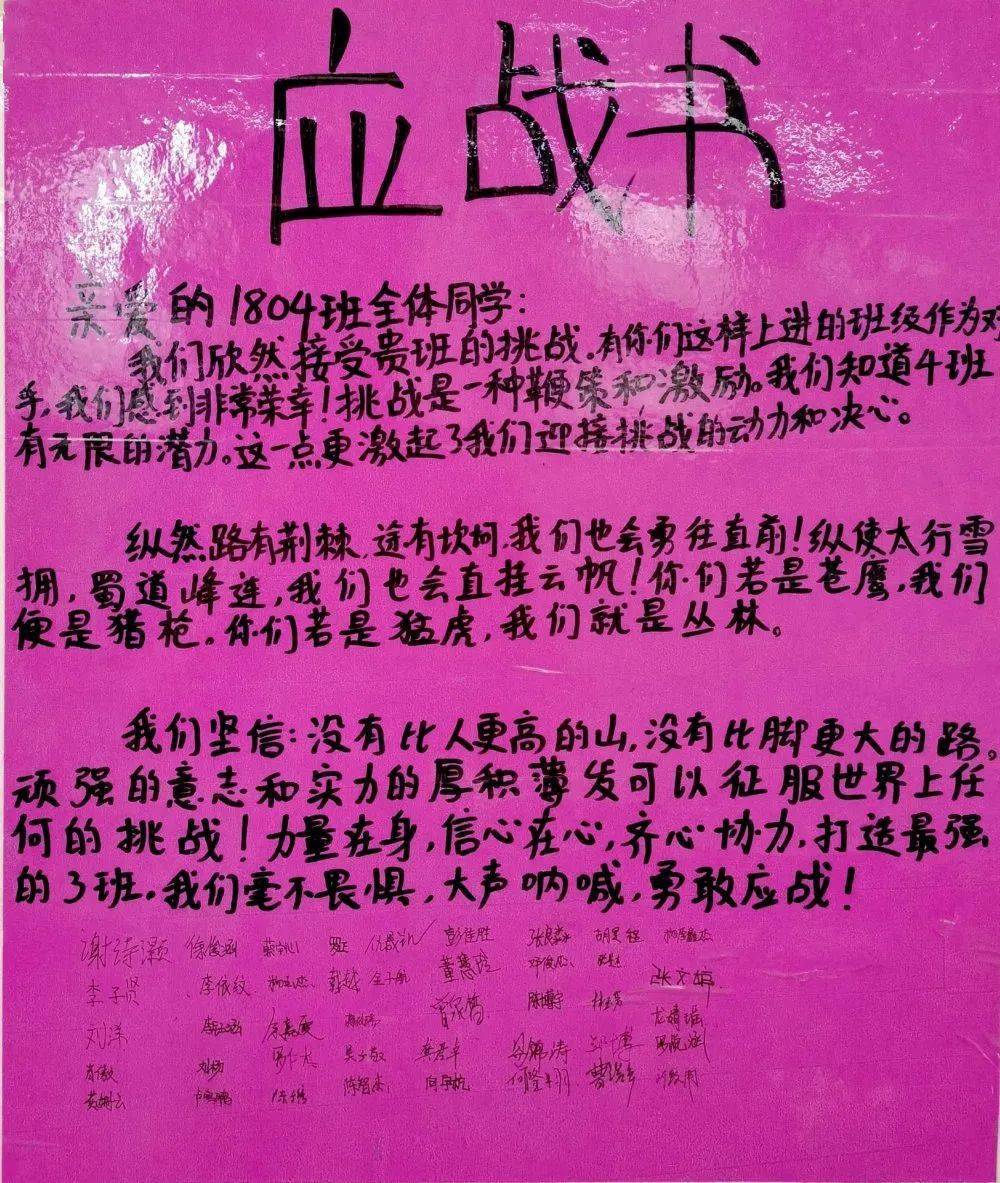 应战书
亲爱的1804班全体同学：
我们欣然接受贵班的挑战.有你们这样上进的班级作为对
手,我们感到非常荣幸！挑战是一种鞭策和激励。我们知道4班
有无限的潜力。这一点更激起了我们迎接挑战的动力和决心。
纵然路有荆棘,途有坎坷,我们也会勇往直前！纵使太行雪
拥，蜀道峰连，我们也会直挂云帆！你们若是苍鹰,我们
便是猎枪。你们若是猛虎,我们就是丛林。
我们坚信：没有比人更高的山,没有比脚更大的路。
顽强的意志和实力的厚积薄发可以征服世界上任
何的挑战！力量在身,信心在心,齐心协力,打造最强
的3班.我们毫不畏惧，大声呐喊,勇敢应战！
谢诗灏 徐俊涵 彭佳胜
李子贤 李依纹 董慧玲 张文婷
刘洋 陈博宇
刘杨 龚彦卓 谷锦涛
陈智杰 向宇航 何隆翔